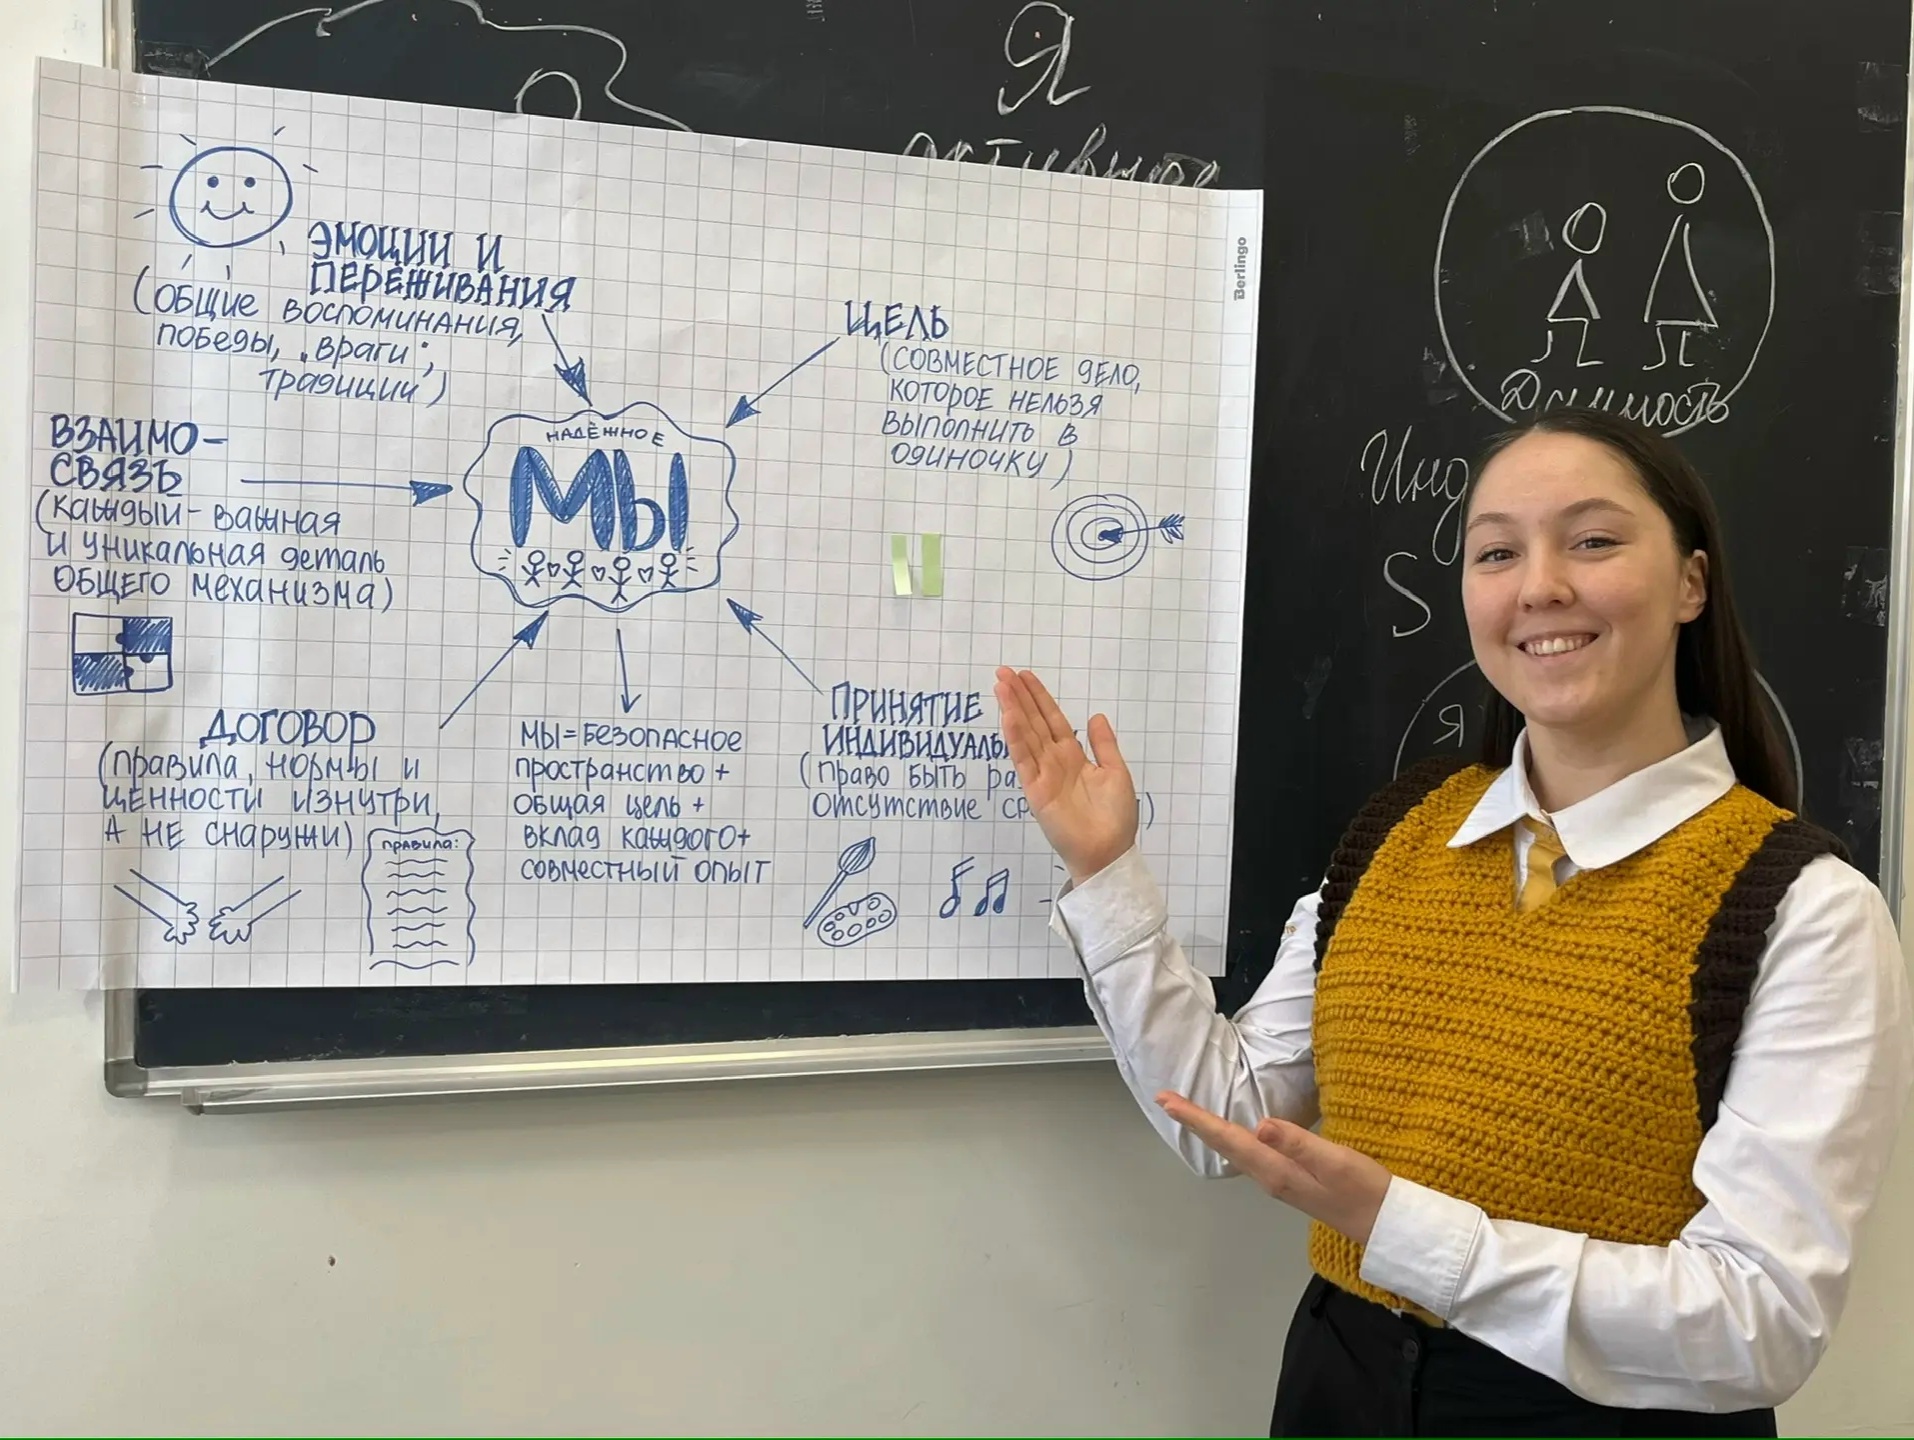 Я
активное
Berlingo
ЭМОЦИИ И
ПЕРЕЖИВАНИЯ
(ОБЩИЕ ВОСПОМИНАНИЯ,
победы, „враги",
традиции)
ЦЕЛЬ
(СОВМЕСТНОЕ ДЕЛО,
КОТОРОЕ НЕЛЬЗЯ
ВЫПОЛНИТЬ В
ОДИНОЧКУ)
ВЗАИМО-
СВЯЗЬ
(каждый - важная
и уникальная деталь
ОБЩЕГО механизма)
НАДЁЖНОЕ
МЫ
ДОГОВОР
(правила, нормы и
ЦЕННОСТИ ИЗНУТРИ,
А НЕ СНАРУЖИ)
ПРАВИЛА:
МЫ = БЕЗОПАСНОЕ
пространство +
общая цель +
вклад каждого +
совместный опыт
ПРИНЯТИЕ
ИНДИВИДУАЛЬ
(право быть ра
отсутствие ср )
Инд
S
Я